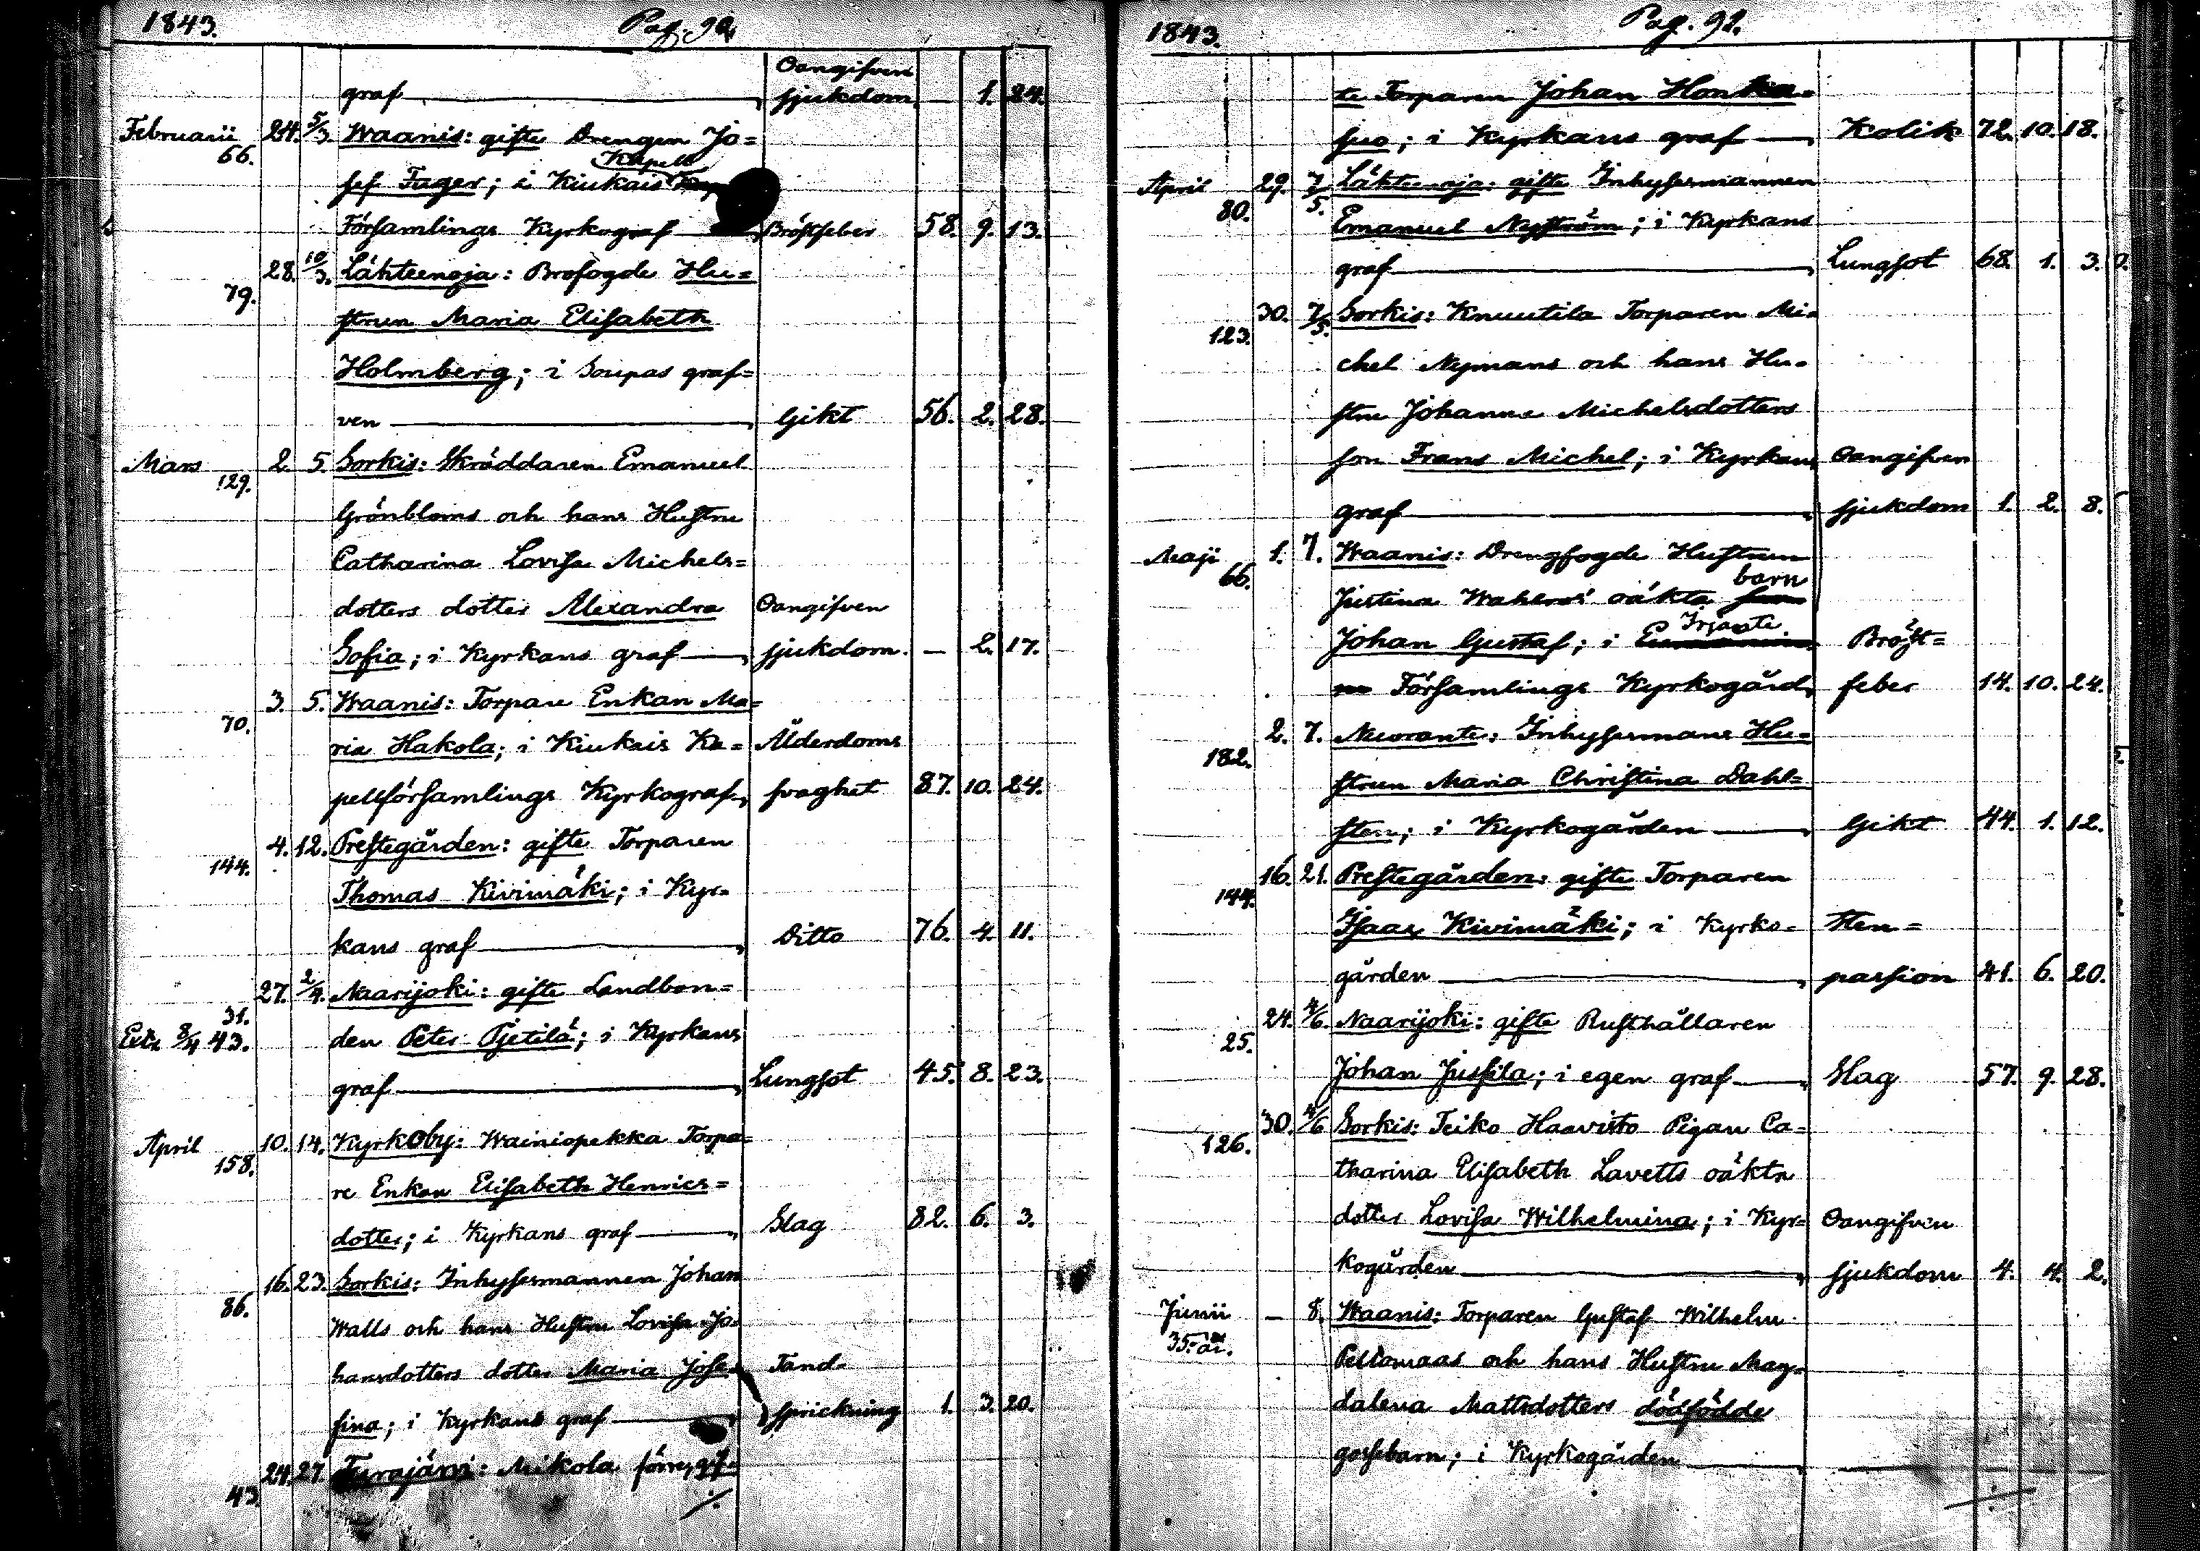 1843.
Pag. 90.
Oangifven
graf sjukdom. — 1. 24.
Februarii 24. 5/3. Waanis: gifte Drengen Jo=
66.
Kapell
sef Fager; i Kiukais
Församlings Kyrkograf Bröstfeber 58. 9. 13.
28. 10/3. Lähteenoja: Brofogde Hu=
79.
strun Maria Elisabeth
Holmberg; i Soupas graf=
ven Gikt 56. 2. 28.
Mars 2. 5. Sorkis: Skräddaren Emanuel
129.
Grönbloms och hans Hustru
Catharina Lovisa Michels=
dotters dotter Alexandra Oangifven
Sofia; i Kyrkans graf sjukdom. — 2. 17.
3. 5. Waanis: Torpare Enkan Ma=
70.
ria Hakola; i Kiukais Ka= Ålderdoms
pellförsamlings Kyrkograf svaghet 87. 10. 24.
4. 12. Prestegården: gifte Torparen
144.
Thomas Kivimäki; i Kyr=
kans graf Ditto 76. 4. 11.
27. 2/4. Naarijoki: gifte Landbon=
31.
8/4 43. den Peter Pjetilä; i Kyrkans
graf Lungsot 45. 8. 23.
April 10. 14. Kyrkoby: Wainiopekka Torpa=
158.
re Enkan Elisabeth Henrics=
dotter; i Kyrkans graf Slag 82. 6. 3.
16. 23. Sorkis: Inhysesmannen Johan
86.
Walls och hans Hustru Lovisa Jo=
hansdotters dotter Maria Jose= Tand=
fina; i Kyrkans graf sprickning 1. 3. 20.
24. 27. Turajärvi: Mikola förre, gif=
43.
1843.
Pag. 91.
te Torparen Johan Honka=
suo; i Kyrkans graf Kolik 72. 10. 18.
April 29. 7/5. Lähteenoja: gifte Inhysesmannen
80.
Emanuel Nyström; i Kyrkans
graf Lungsot 68. 1. 3.
30. 7/5. Sorkis: Knuutila Torparen Mi=
123.
chel Nymans och hans Hu=
stru Johanna Michelsdotters
son Frans Michel; i Kyrkans Oangifven
graf sjukdom 1. 2. 8.
Maji 1. 7. Waanis: Drengfogde Hustrun
66.
barn
Justina Wahlros' oäkta
Irjante
Johan Gustaf; i Bröst=
Församlings Kyrkogård feber 14. 10. 24.
2. 7. Neuvante: Inhysesmans Hu=
182.
strun Maria Christina Dahl=
sten; i Kyrkogården Gikt 44. 1. 12.
16. 21. Prestegården: gifte Torparen
144.
Isaac Kivimäki; i Kyrko= Sten=
gården passion 41. 6. 20.
24. 4/6. Naarijoki: gifte Rusthållaren
25.
Johan Jussila; i egen graf Slag 57. 9. 28.
30. 4/6 Sorkis: Teiko Haavisto Pigan Ca=
126.
tharina Elisabeth Lavetts oäkta
dotter Lovisa Wilhelmina; i Kyr= Oangifven
kogården sjukdom 4. 4. 2.
Junii — 8. Waanis: Torparen Gustaf Wilhelm
35. år.
Peltomaas och hans Hustru Mag=
dalena Mattsdotters dödfödde
gossebarn; i Kyrkogården